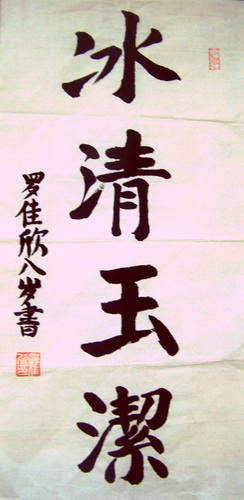 冰清玉潔
罗佳欣八岁書